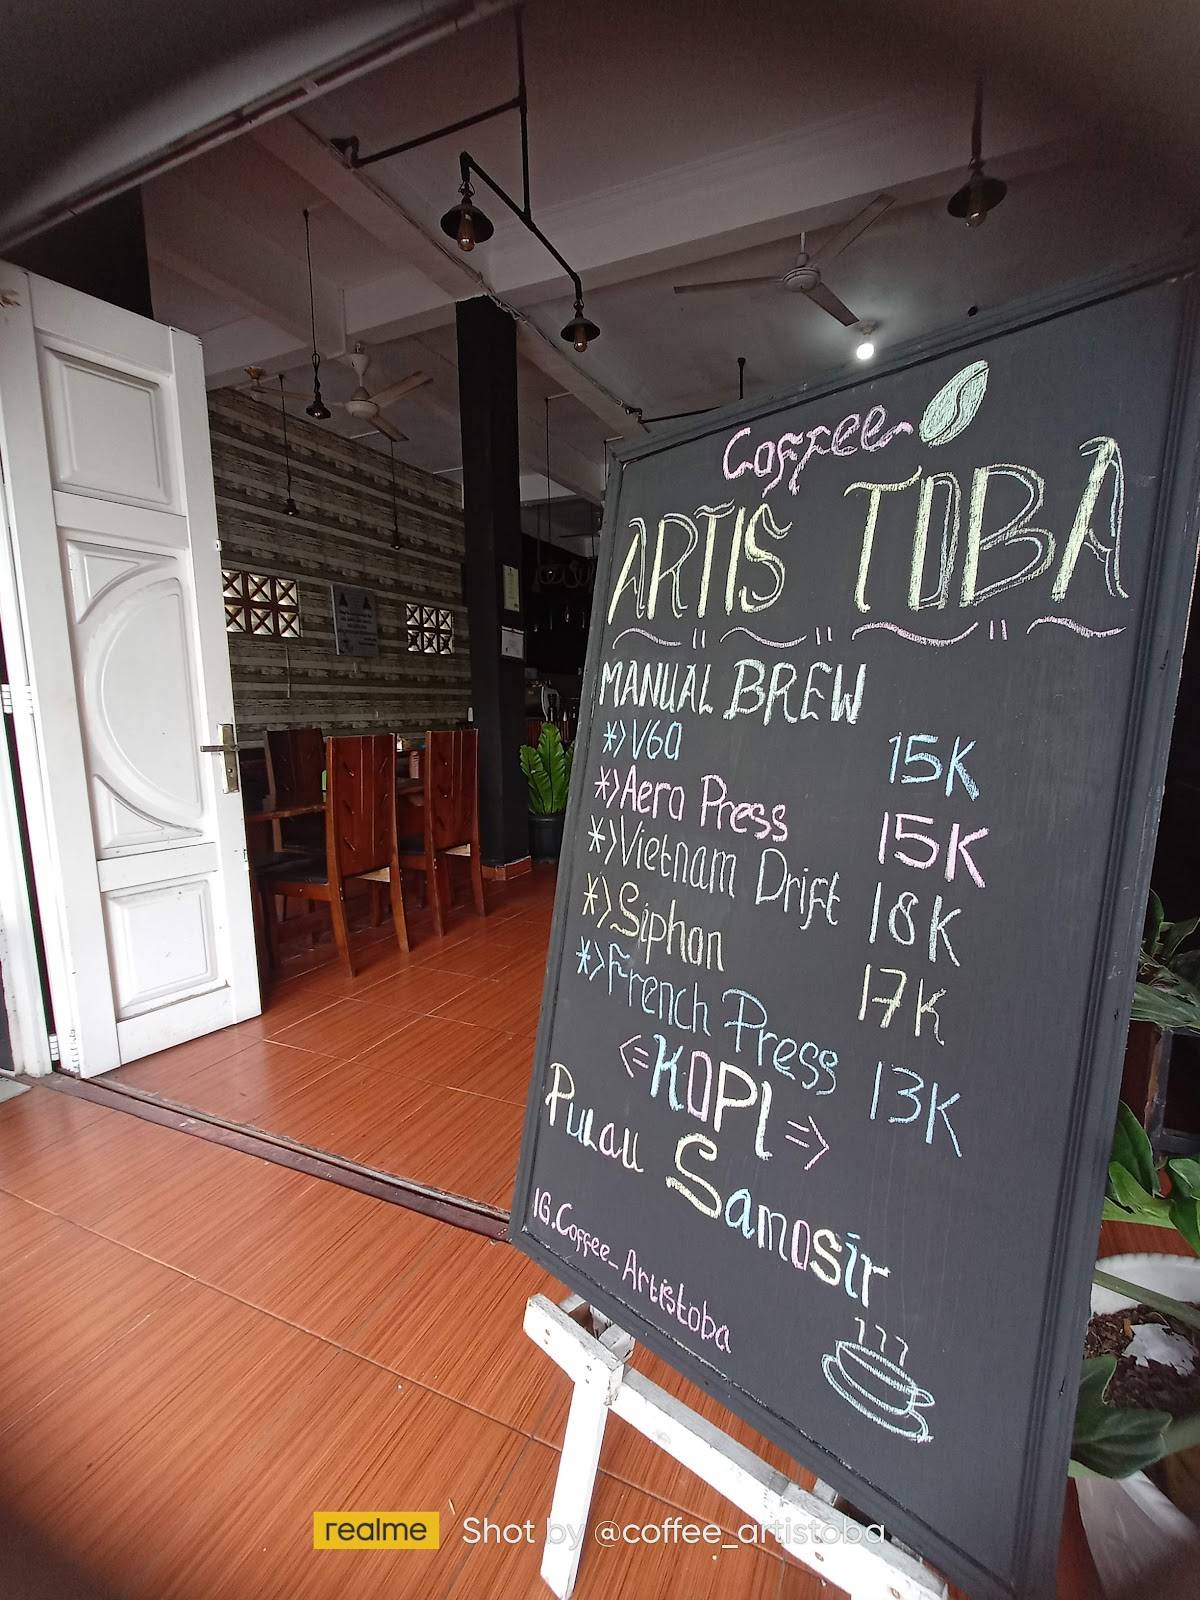 Coffee
ARTIS TOBA
MANUAL BREW
*>V60 15K
*>Aero Press 15K
*>Vietnam Drift 18K
*>Siphon 17K
*>French Press 13K
<=KOPI=>
Pulau Samosir
IG.Coffee_Artistoba
realme Shot by @coffee_artistoba